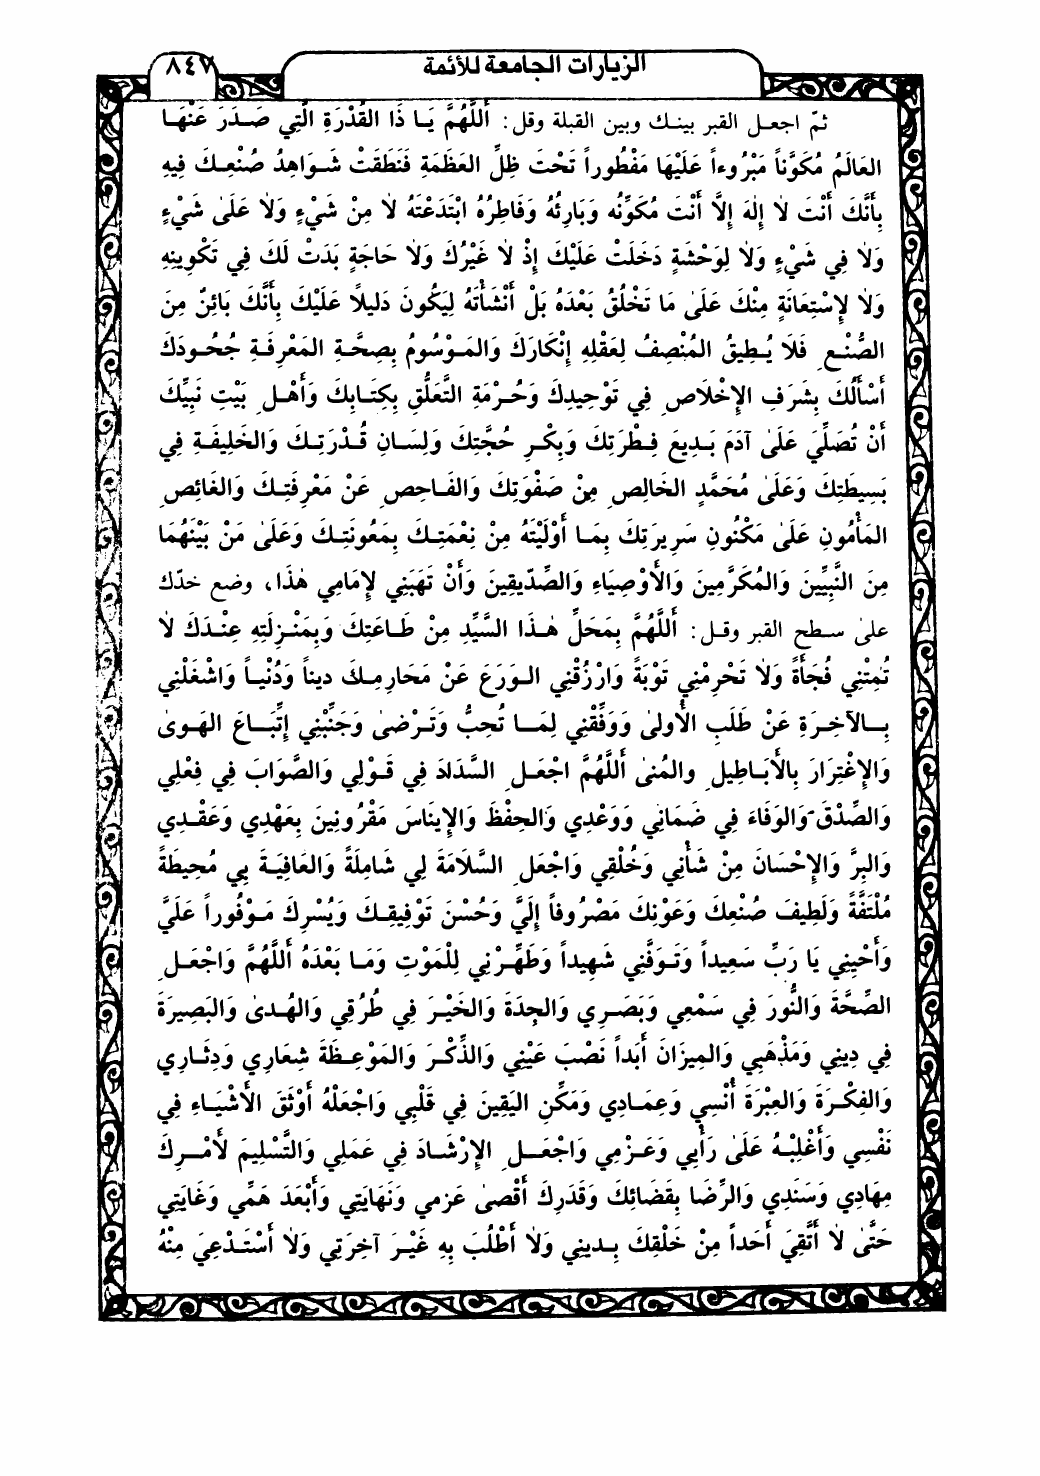 الزيارات الجامعة للأئمة
٨٤٧
ثمّ اجعل القبر بينك وبين القبلة وقل: أَللَّهُمَّ يَا ذَا القُدْرَةِ الَّتِي صَدَرَ عَنْهَا
العَالَمُ مُكَوَّناً مَبْرُوءاً عَلَيْهَا مَفْطُوراً تَحْتَ ظِلِّ العَظَمَةِ فَنَطَقَتْ شَوَاهِدُ صُنْعِكَ فِيهِ
بِأَنَّكَ أَنْتَ لاٰ إِلهَ إِلاَّ أَنْتَ مُكَوِّنُه وَبَارِئُهُ وَفَاطِرُهُ ابْتَدَعْتَهُ لاٰ مِنْ شَيْءٍ وَلاٰ عَلىٰ شَيْءٍ
وَلاٰ فِي شَيْءٍ وَلاٰ لِوَحْشَةٍ دَخَلَتْ عَلَيْكَ إِذْ لاٰ غَيْرُكَ وَلاٰ حَاجَةٍ بَدَتْ لَكَ فِي تَكْوِينِهِ
وَلاٰ لِإِسْتِعَانَةٍ مِنْكَ عَلىٰ مَا تَخْلُقُ بَعْدَهُ بَلْ أَنْشَأْتَهُ لِيَكُونَ دَلِيلاً عَلَيْكَ بِأَنَّكَ بَائِنٌ مِنَ
الصُّنْعِ فَلَا يُطِيقُ المُنْصِفُ لِعَقْلِهِ إِنْكَارَكَ وَالمَوْسُومُ بِصِحَّةِ المَعْرِفَةِ جُحُودَكَ
أَسْأَلُكَ بِشَرَفِ الإِخْلَاصِ فِي تَوْحِيدِكَ وَحُرْمَةِ التَّعَلُّقِ بِكِتَابِكَ وَأَهْلِ بَيْتِ نَبِيِّكَ
أَنْ تُصَلِّيَ عَلىٰ آدَمَ بَدِيعِ فِطْرَتِكَ وَبِكْرِ حُجَّتِكَ وَلِسَانِ قُدْرَتِكَ وَالخَلِيفَةِ فِي
بَسِيطَتِكَ وَعَلىٰ مُحَمَّدٍ الخَالِصِ مِنْ صَفْوَتِكَ وَالفَاحِصِ عَنْ مَعْرِفَتِكَ وَالغَائِصِ
المَأْمُونِ عَلىٰ مَكْنُونِ سَرِيرَتِكَ بِمَا أَوْلَيْتَهُ مِنْ نِعْمَتِكَ بِمَعُونَتِكَ وَعَلىٰ مَنْ بَيْنَهُمَا
مِنَ النَّبِيِّينَ وَالمُكَرَّمِينَ وَالأَوْصِيَاءِ وَالصِّدّيقِينَ وَأَنْ تَهَبَنِي لِإِمَامِي هٰذَا، وضع خدّك
علىٰ سطح القبر وقل: أَللَّهُمَّ بِمَحَلِّ هٰذَا السَّيِّدِ مِنْ طَاعَتِكَ وَبِمَنْزِلَتِهِ عِنْدَكَ لاٰ
تُمِتْنِي فُجَأَةً وَلاٰ تَحْرِمْنِي تَوْبَةً وَارْزُقْنِي الوَرَعَ عَنْ مَحَارِمِكَ ديناً وَدُنْياً وَاشْغَلْنِي
بِالآخِرَةِ عَنْ طَلَبِ الأُولىٰ وَوَفِّقْنِي لِمَا تُحِبُّ وَتَرْضىٰ وَجَنِّبْنِي إِتِّبَاعَ الهَوىٰ
وَالإِغْتِرَارَ بِالأَبَاطِيلِ والمُنىٰ أَللَّهُمَّ اجْعَلِ السَّدَادَ فِي قَوْلِي وَالصَّوَابَ فِي فِعْلِي
وَالصِّدْقَ وَالوَفَاءَ فِي ضَمَانِي وَوَعْدِي وَالحِفْظَ وَالإِينَاسَ مَقْرُونِينَ بِعَهْدِي وَعَقْدِي
وَالبِرَّ وَالإِحْسَانَ مِنْ شَأْنِي وَخُلْقِي وَاجْعَلِ السَّلَامَةَ لِي شَامِلَةً وَالعَافِيَةَ بِي مُحِيطَةً
مُلْتَفَّةً وَلَطِيفَ صُنْعِكَ وَعَوْنِكَ مَصْرُوفاً إِلَيَّ وَحُسْنَ تَوْفِيقِكَ وَيُسْرِكَ مَوْفُوراً عَلَيَّ
وَأَحْيِنِي يَا رَبِّ سَعِيداً وَتَوَفَّنِي شَهِيداً وَطَهِّرْنِي لِلْمَوْتِ وَمَا بَعْدَهُ أَللَّهُمَّ وَاجْعَلِ
الصِّحَّةَ وَالنُّورَ فِي سَمْعِي وَبَصَرِي وَالجِدَةَ وَالخَيْرَ فِي طُرُقِي وَالهُدىٰ وَالبَصِيرَةَ
فِي دِينِي وَمَذْهَبِي وَالمِيزَانَ أَبَداً نَصْبَ عَيْنِي وَالذِّكْرَ وَالمَوْعِظَةَ شِعَارِي وَدِثَارِي
وَالفِكْرَةَ وَالعِبْرَةَ أُنْسِي وَعِمَادِي وَمَكِّنِ اليَقِينَ فِي قَلْبِي وَاجْعَلْهُ أَوْثَقَ الأَشْيَاءِ فِي
نَفْسِي وَأَغْلِبْهُ عَلىٰ رَأْيِي وَعَزْمِي وَاجْعَلِ الإِرْشَادَ فِي عَمَلِي وَالتَّسْلِيمَ لأَمْرِكَ
مِهَادِي وَسَنَدِي وَالرِّضَا بِقَضَائِكَ وَقَدَرِكَ أَقْصىٰ عَزمي وَنَهَايَتِي وَأَبْعَدَ هَمِّي وَغَايَتِي
حَتّىٰ لاٰ أَتَّقِيَ أَحَداً مِنْ خَلْقِكَ بِدِينِي وَلاٰ أَطْلُبَ بِهِ غَيْرَ آخِرَتِي وَلاٰ أَسْتَدْعِيَ مِنْهُ